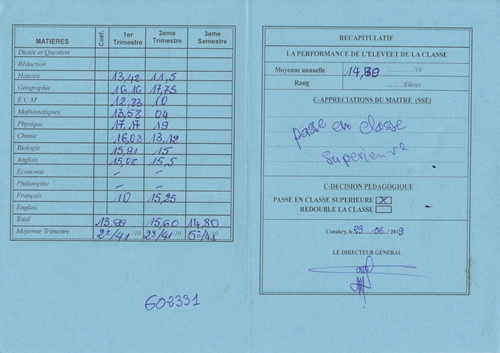 MATIERES Coéf. 1er Trimestre 2eme Trimestre 3eme Semestre
Dictée et Question
Rédaction
Histoire 13,42 11,5
Géographie 16,16 17,75
E C M 12,83 10
Mathématiques 13,58 04
Physique 17,17 19
Chimie 16,08 13,12
Biologie 15,91 15
Anglais 15,08 15,5
Economie
Philosophie
Français 10 15,25
Englais
Total 13,99 15,60 14,80
Moyenne Trimestre 2e/41 /10 2e/41 /10 5e/41 /10
602331
RECAPITULATIF
LA PERFORMANCE DE L'ELEVEET DE LA CLASSE
Moyenne annuelle 14,80 /10
Rang Elèves
C-APPRECIATIONS DU MAITRE (SSE)
passe en classe
C-DECISION PEDAGOGIQUE
PASSE EN CLASSE SUPERIEURE X
REDOUBLE LA CLASSE
Conakry, le 29 06 /2019
LE DIRECTEUR GENERAL